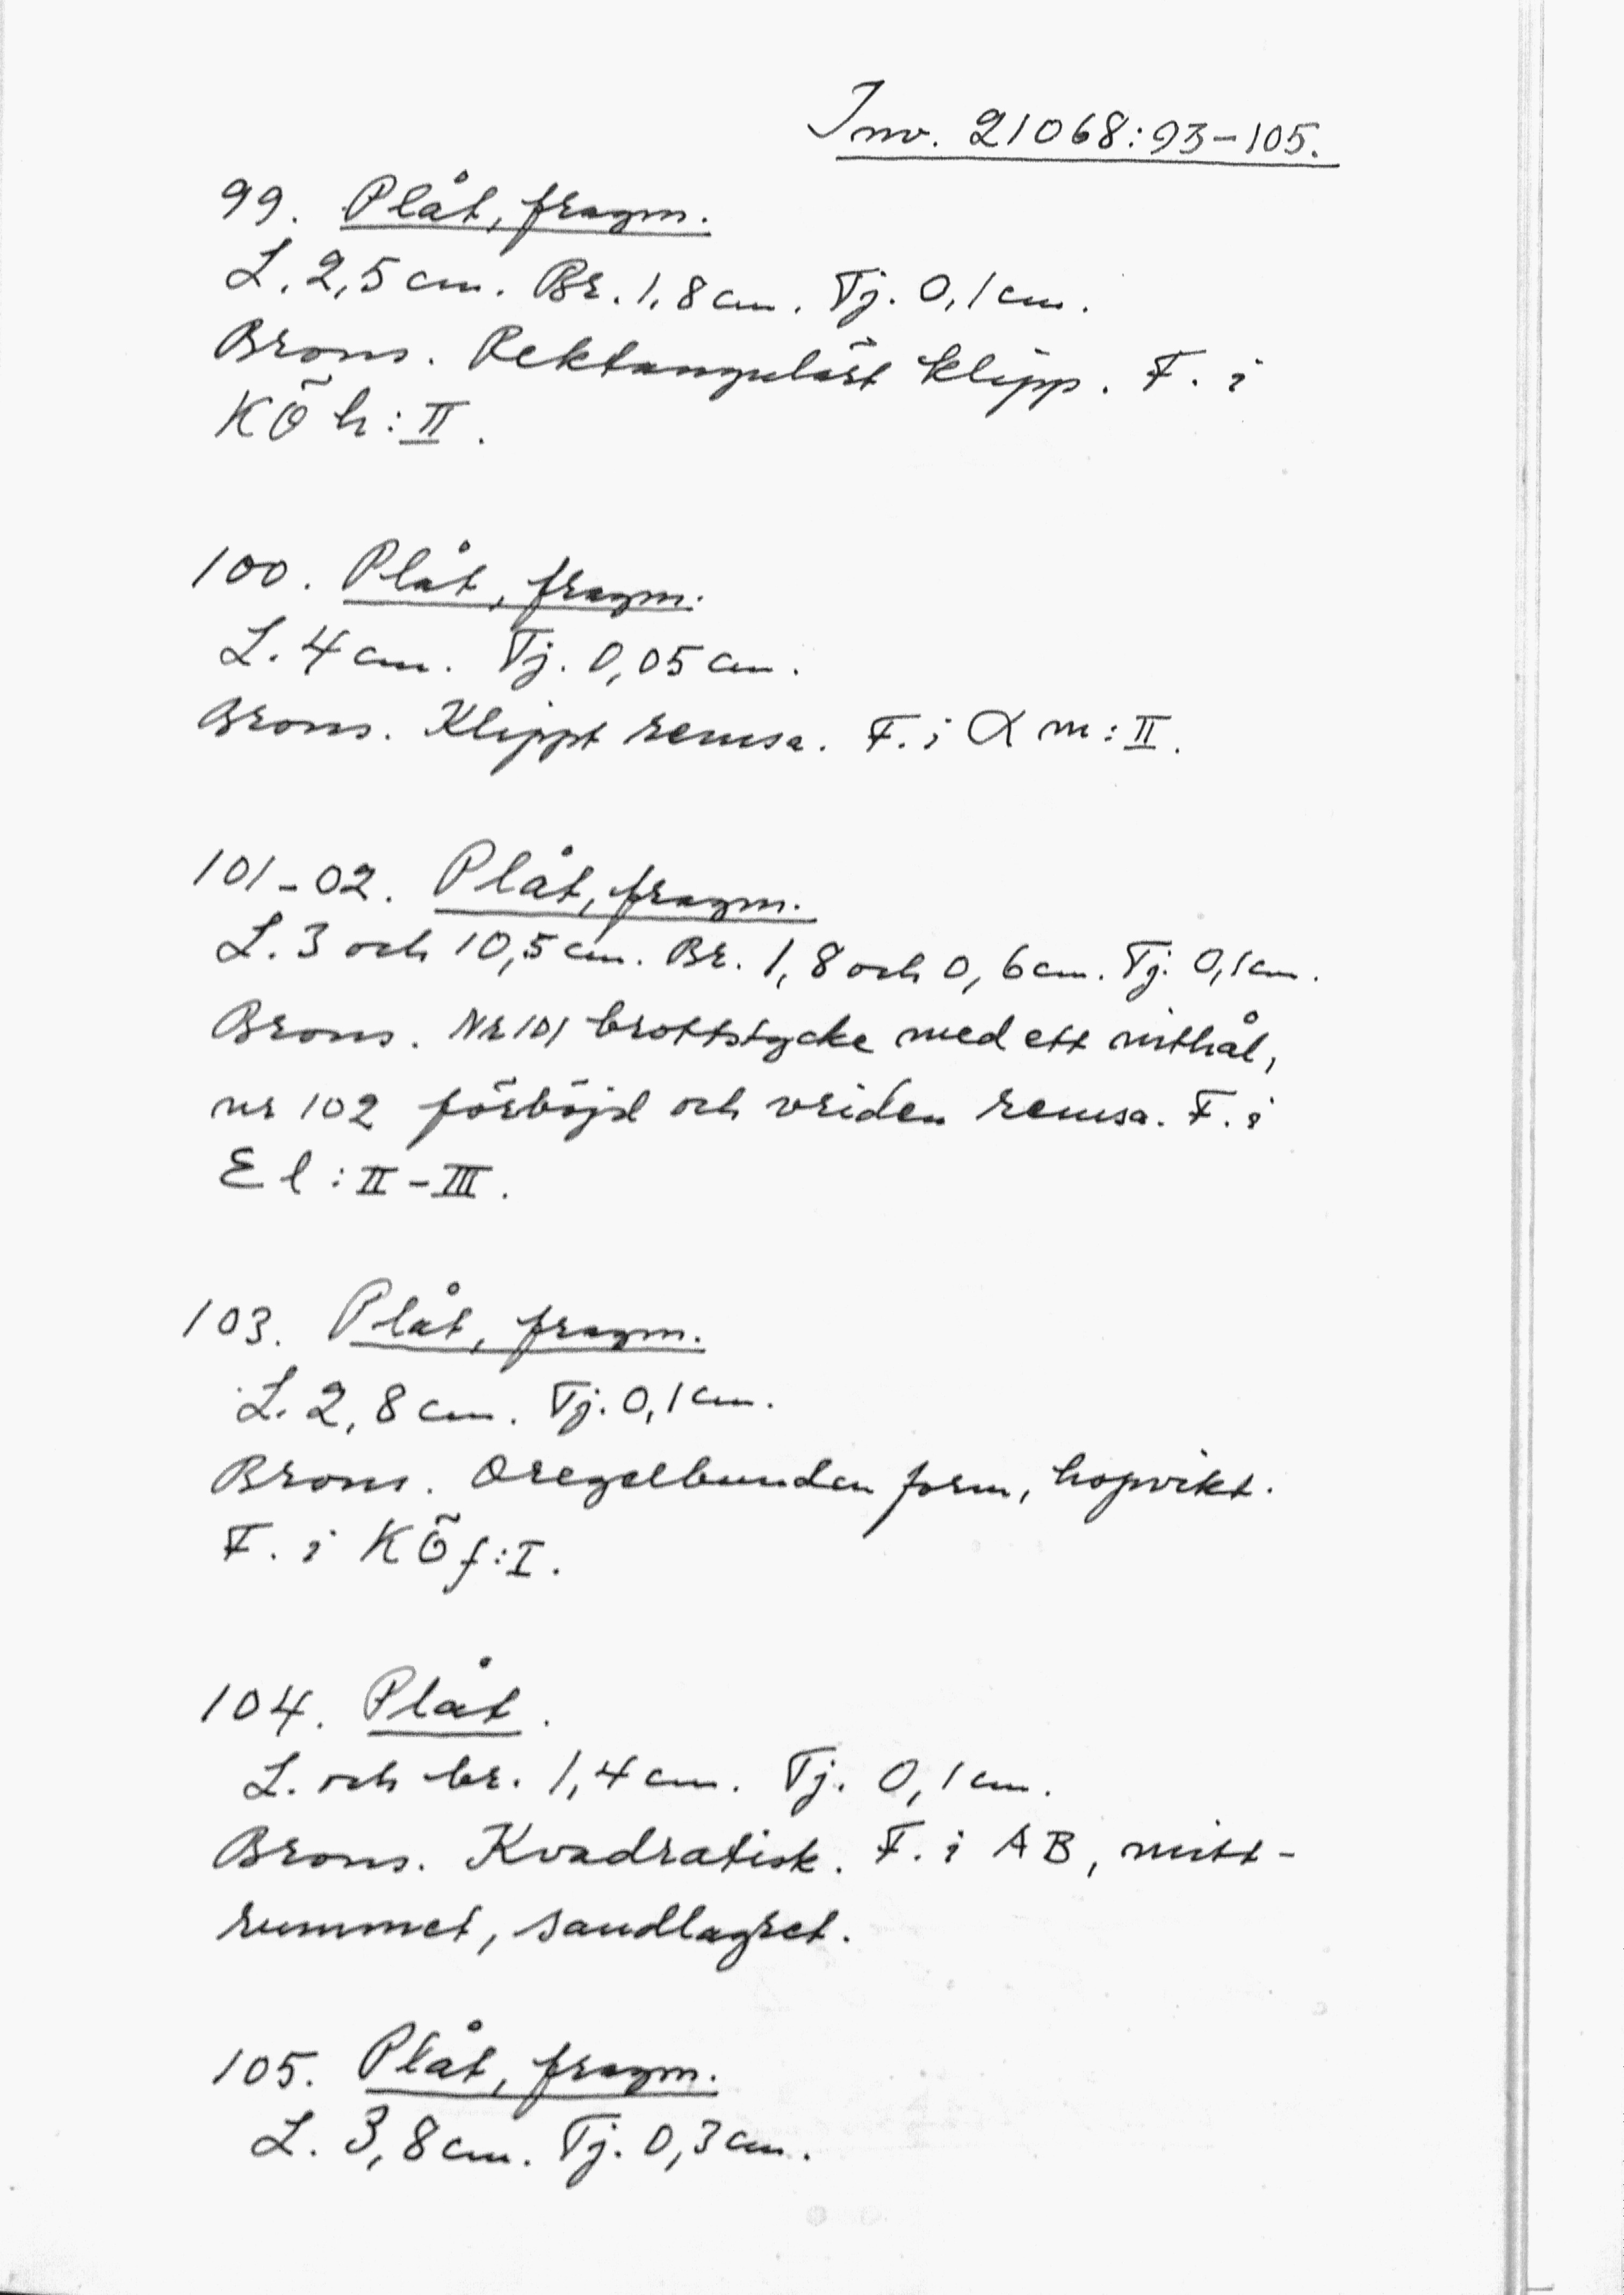 Inv. 21068:93-105.
99. Plåt, fragm.
L. 2,5 cm. Br. 1,8 cm. Tj. 0,1 cm.
Brons. Rektangulärt klipp. F. i
KÖ h: II.
100. Plåt, fragm.
L. 4 cm. Tj. 0,05 cm.
Brons. Klippt remsa. F. i α m: II.
101-02. Plåt, fragm.
L. 3 och 10,5 cm. Br. 1,8 och 0,6 cm. Tj. 0,1 cm.
Brons. Nr 101 brottstycke med ett nithål,
nr 102 förböjd och vriden remsa. F. i
E l: II-III.
103. Plåt, fragm.
L. 2,8 cm. Tj. 0,1 cm.
Brons. Oregelbunden form, hopvikt.
F. i KÖ f: I.
104. Plåt.
L. och br. 1,4 cm. Tj. 0,1 cm.
Brons. Kvadratisk. F. i AB, mitt-
rummet, sandlagret.
105. Plåt, fragm.
L. 3,8 cm. Tj. 0,3 cm.